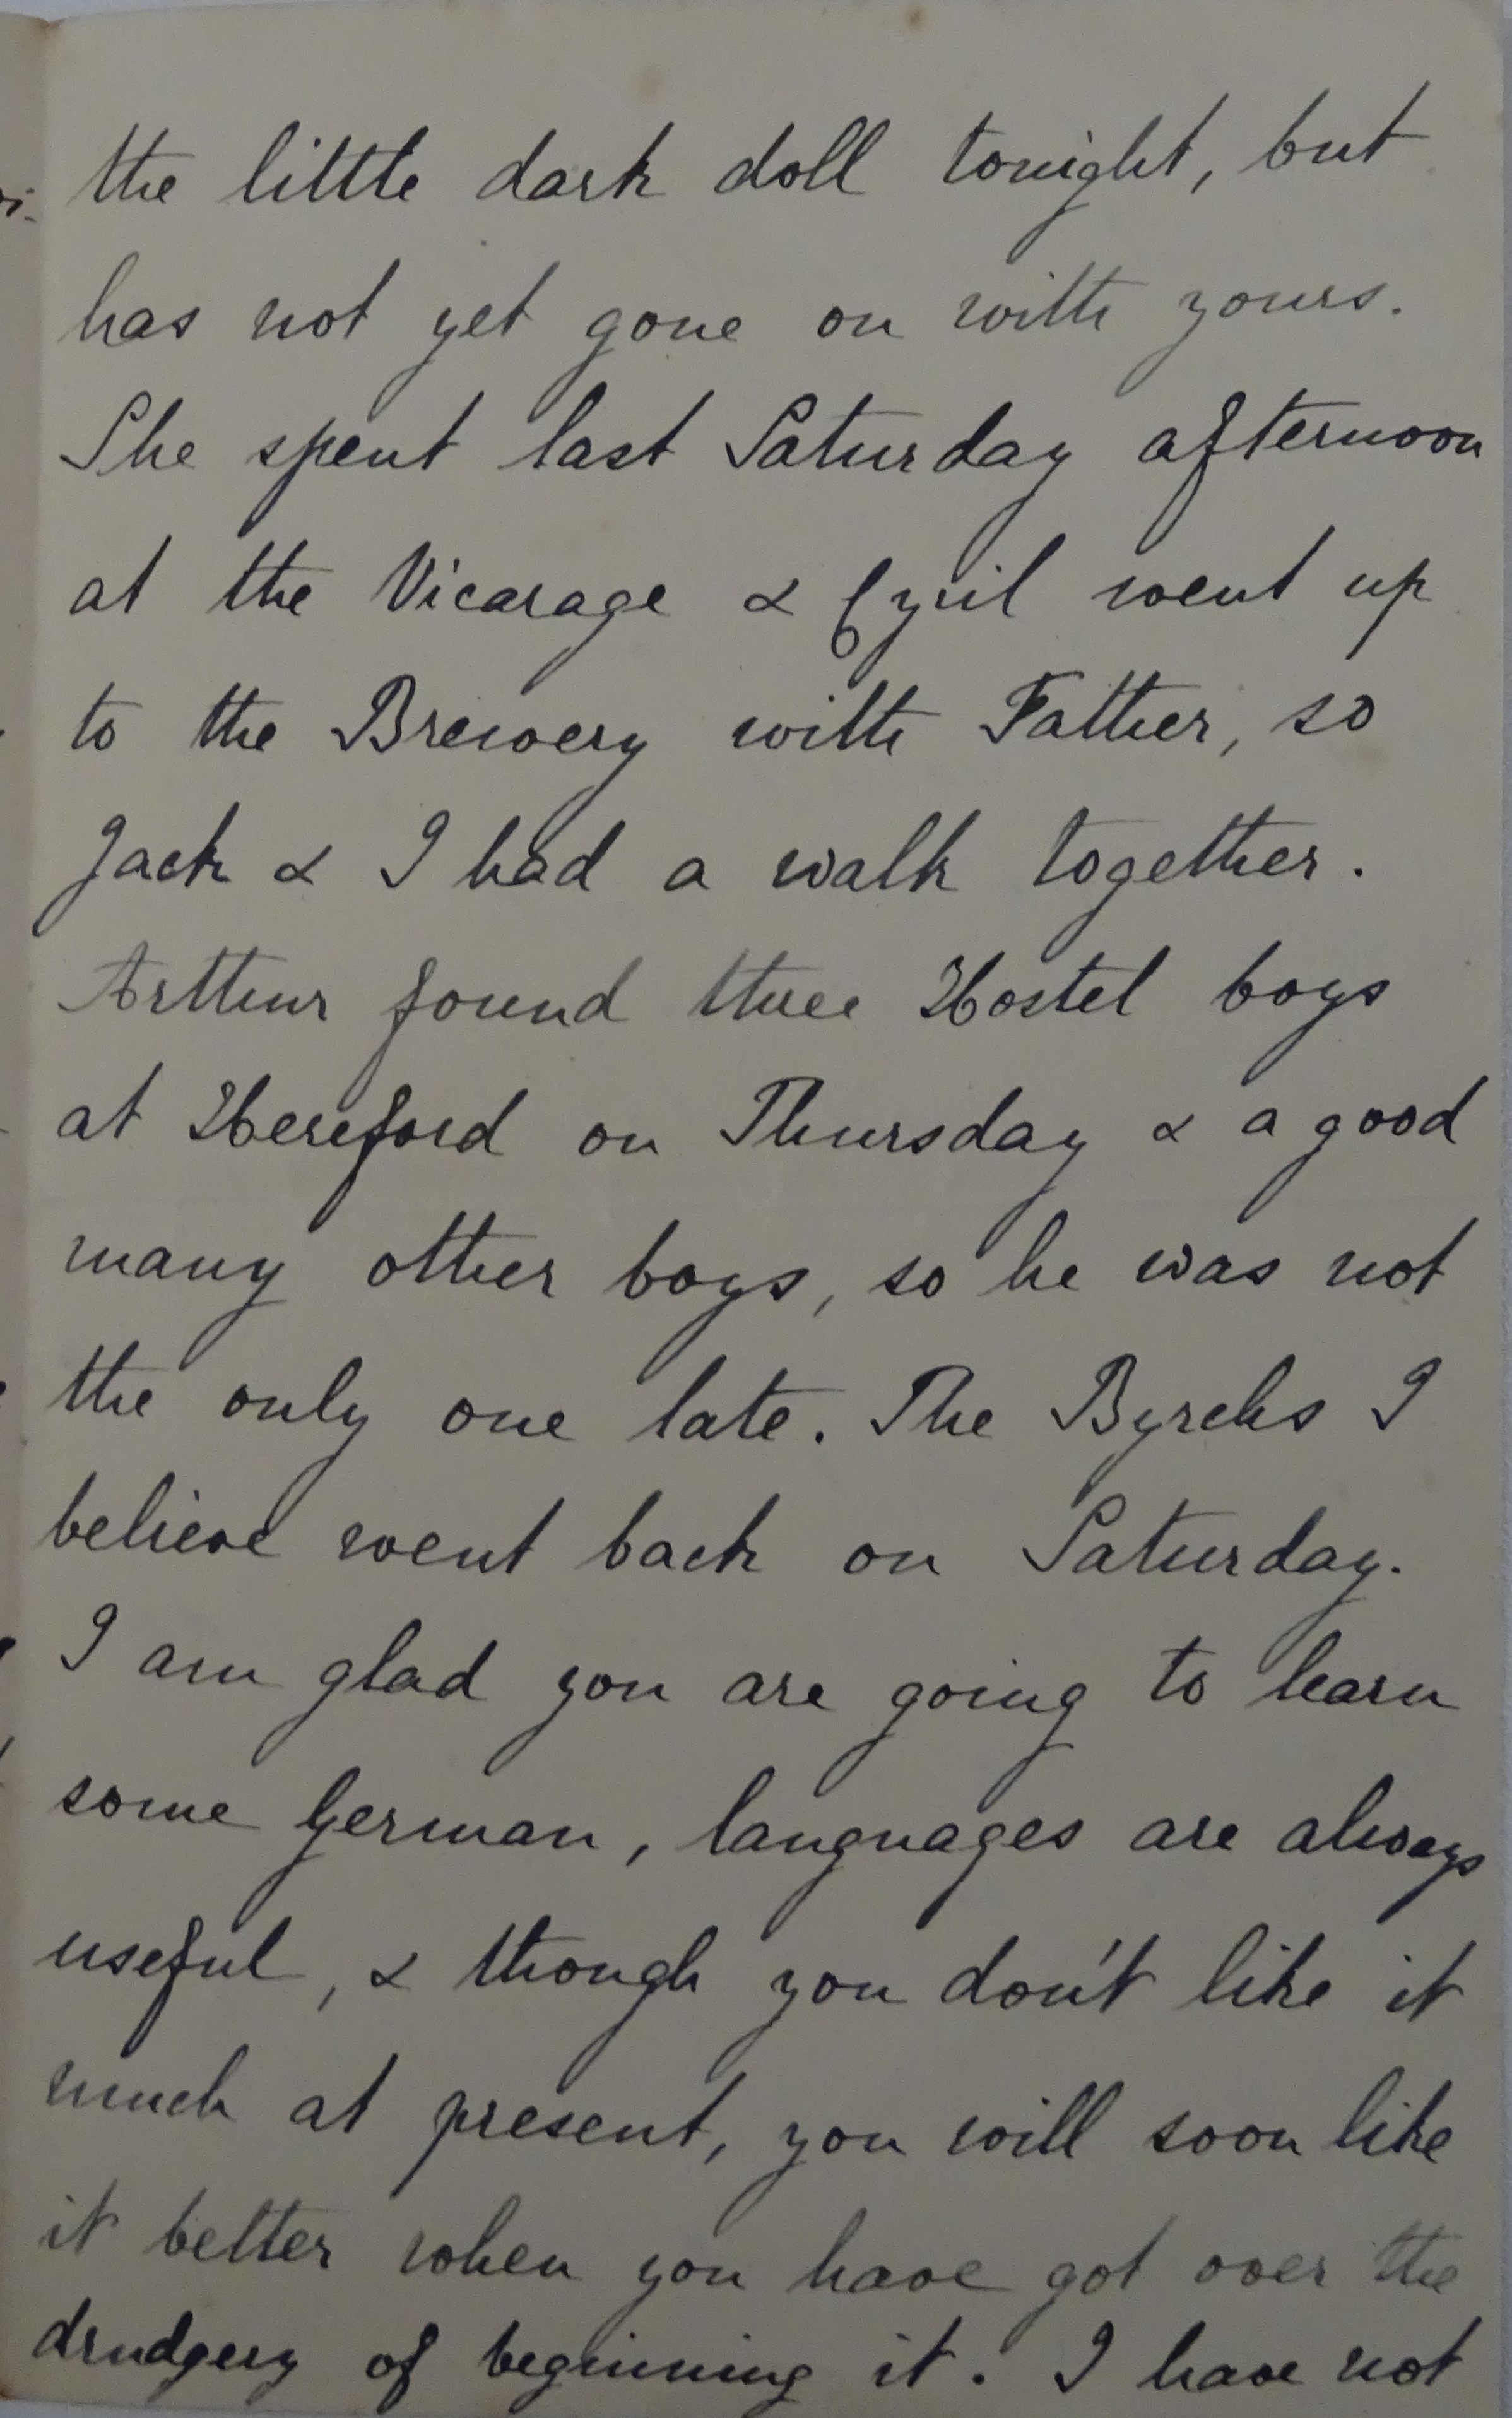 the little dark doll tonight, but
has not yet gone on with yours.
She spent last Saturday afternoon
at the Vicarage & Cyril went up
to the Brewery with Father, so
Jack & I had a walk together.
Arthur found three Hostel boys
at Hereford on Thursday & a good
many other boys, so he was not
the only one late. The Byrchs I
believe went back on Saturday.
I am glad you are going to learn
some German, languages are always
useful, & though you don't like it
much at present, you will soon like
it better when you have got over the
drudgery of beginning it. I have not